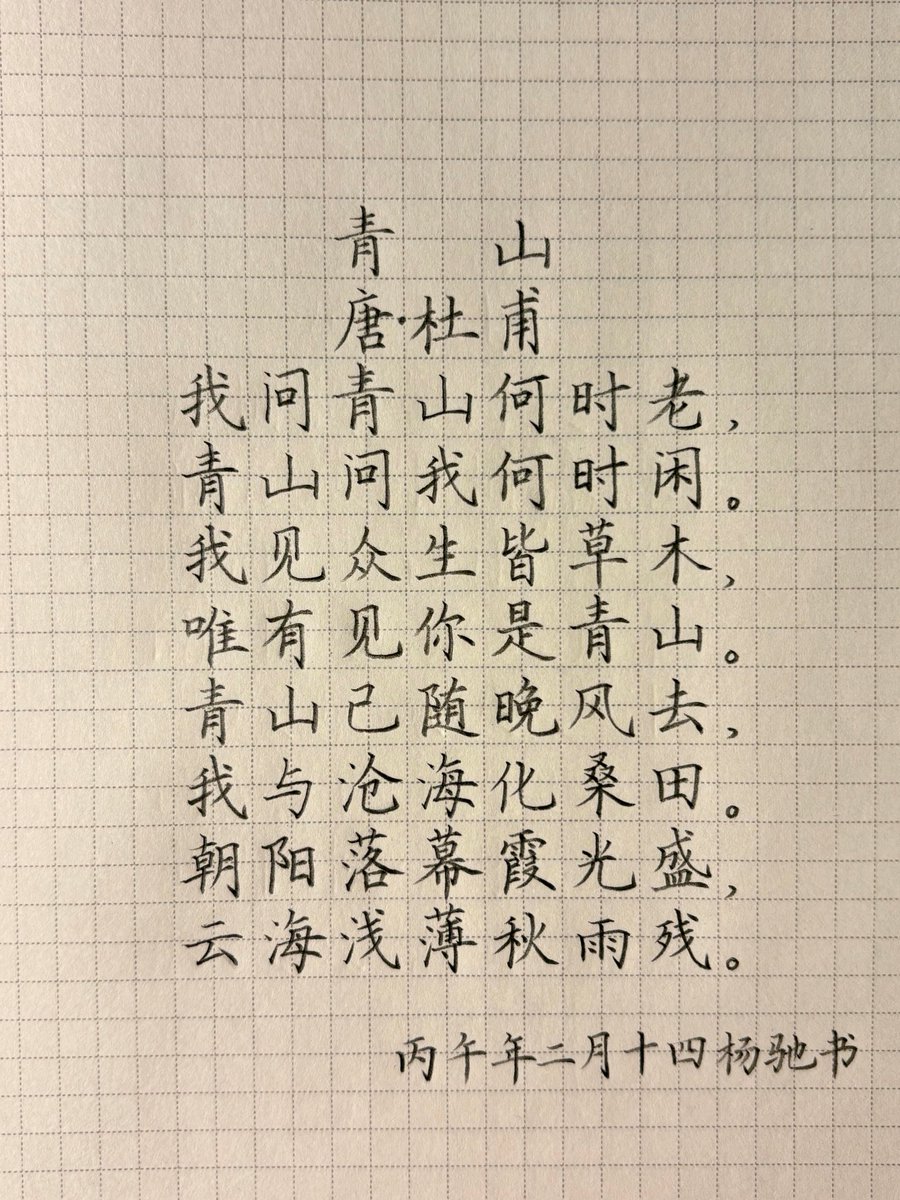 青山
唐·杜甫
我问青山何时老，
青山问我何时闲。
我见众生皆草木，
唯有见你是青山。
青山已随晚风去，
我与沧海化桑田。
朝阳落幕霞光盛，
云海浅薄秋雨残。
丙午年二月十四杨驰书